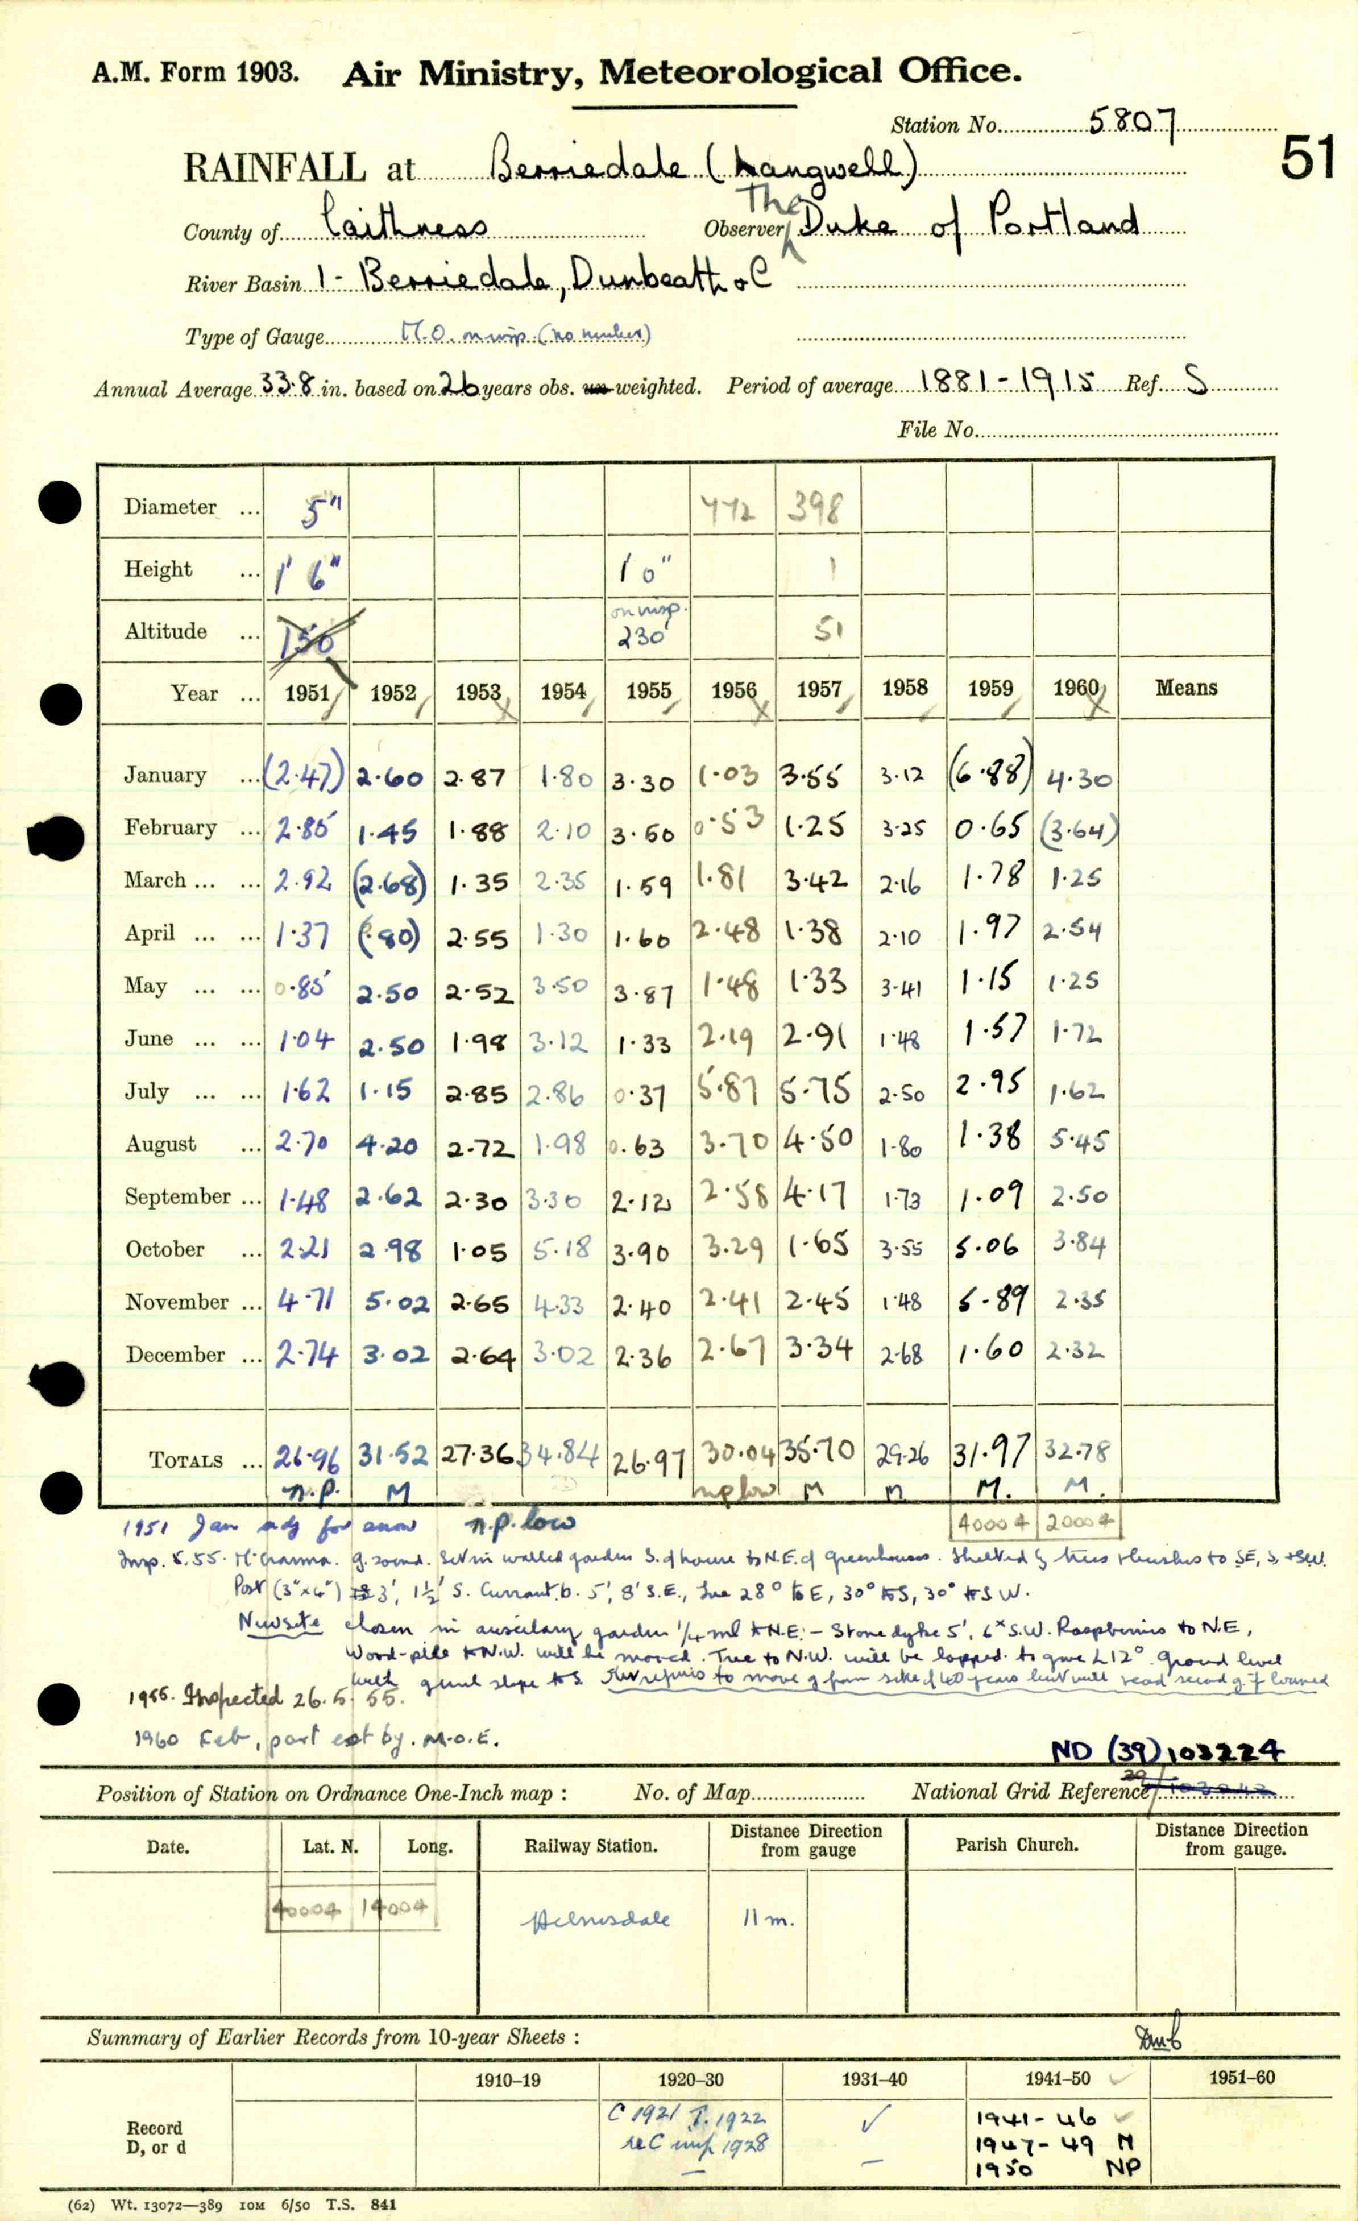 A.M. Form 1903. Air Ministry, Meteorological Office.
Station No. 5807
51
RAINFALL at Berriedale (Langwell)
County of Caithness Observer The Duke of Portland
River Basin 1 - Berriedale, Dunbeath & C
Type of Gauge M.O. on insp. (no number)
Annual Average 33.8 in. based on 26 years obs. un weighted. Period of average 1881 - 1915 Ref. S
File No.
Diameter ... 5" 772 398
Height ... 1' 6" 1' 0" 1
Altitude ... 150 on insp. 230' 51
Year ... 1951 1952 1953 1954 1955 1956 1957 1958 1959 1960 Means
January ... (2.47) 2.60 2.87 1.80 3.30 1.03 3.55 3.12 (6.88) 4.30
February ... 2.85 1.45 1.88 2.10 3.50 0.53 1.25 3.25 0.65 (3.64)
March ... ... 2.92 (2.68) 1.35 2.35 1.59 1.81 3.42 2.16 1.78 1.25
April ... ... 1.37 (.80) 2.55 1.30 1.60 2.48 1.38 2.10 1.97 2.54
May ... ... 0.85 2.50 2.52 3.50 3.87 1.48 1.33 3.41 1.15 1.25
June ... ... 1.04 2.50 1.98 3.12 1.33 2.19 2.91 1.48 1.57 1.72
July ... ... 1.62 1.15 2.85 2.86 0.37 5.87 5.75 2.50 2.95 1.62
August ... 2.70 4.20 2.72 1.98 0.63 3.70 4.50 1.80 1.38 5.45
September ... 1.48 2.62 2.30 3.30 2.12 2.58 4.17 1.73 1.09 2.50
October ... 2.21 2.98 1.05 5.18 3.90 3.29 1.65 3.55 5.06 3.84
November ... 4.71 5.02 2.65 4.33 2.40 2.41 2.45 1.48 5.89 2.35
December ... 2.74 3.02 2.64 3.02 2.36 2.67 3.34 2.68 1.60 2.32
TOTALS ... 26.96 31.52 27.36 34.84 26.97 30.04 35.70 29.26 31.97 32.78
n.p. M np low M M M. M.
1951 Jan adj for snow n.p. low 40004 20004
Insp. 5.55. g. sound. Set in walled garden S. of house to N.E. of greenhouses. Shelted by trees & bushes to SE, S, & SW.
Post (3"x4") 3', 1½' S. Currant b. 5', 8' S.E., Tree 28° to E, 30° to S, 30° to S W.
New site chosen in auxiliary garden ¼ ml to N.E. - Stone dyke 5', 6x S.W. Raspberries to N.E,
Wood-pile to N.W. will be moved. Tree to N.W. will be lopped to give L 12° ground level
with slope to S to move g from site of 40 years but will read second g if loaned
1955. Inspected 26.5.55.
1960 Feb, part est by. M.O.E.
ND (39) 103224
Position of Station on Ordnance One-Inch map : No. of Map National Grid Reference 39/103242
Date. Lat. N. Long. Railway Station. Distance from Direction gauge Parish Church. Distance from Direction gauge.
40004 14004 Helmsdale 11 m.
Summary of Earlier Records from 10-year Sheets :
1910–19 1920–30 1931–40 1941–50 1951–60
Record D, or d
C 1921 I. 1922 ✓ 1941 - 46 ✓
1928 1947 - 49 M
— — 1950 NP
(62) Wt. 13072—389 10M 6/50 T.S. 841